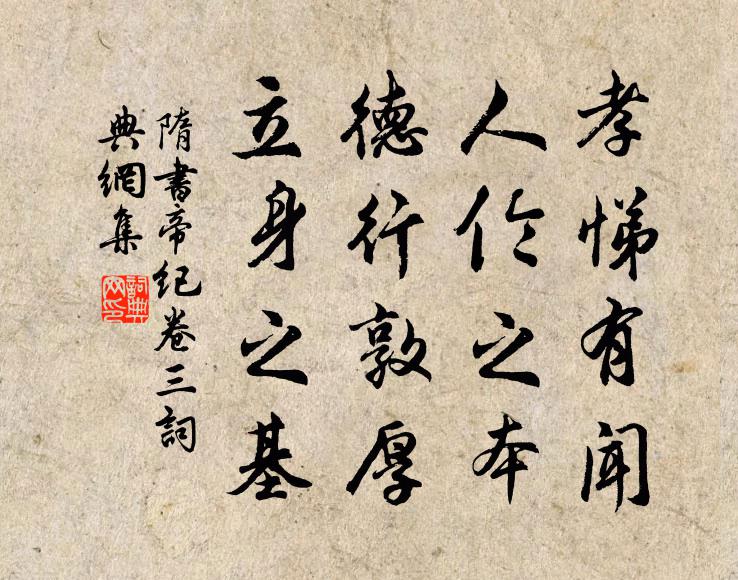 孝悌有聞
人伦之本
德行敦厚
立身之基
隋書帝紀卷三詞
典網集
詞典
网印